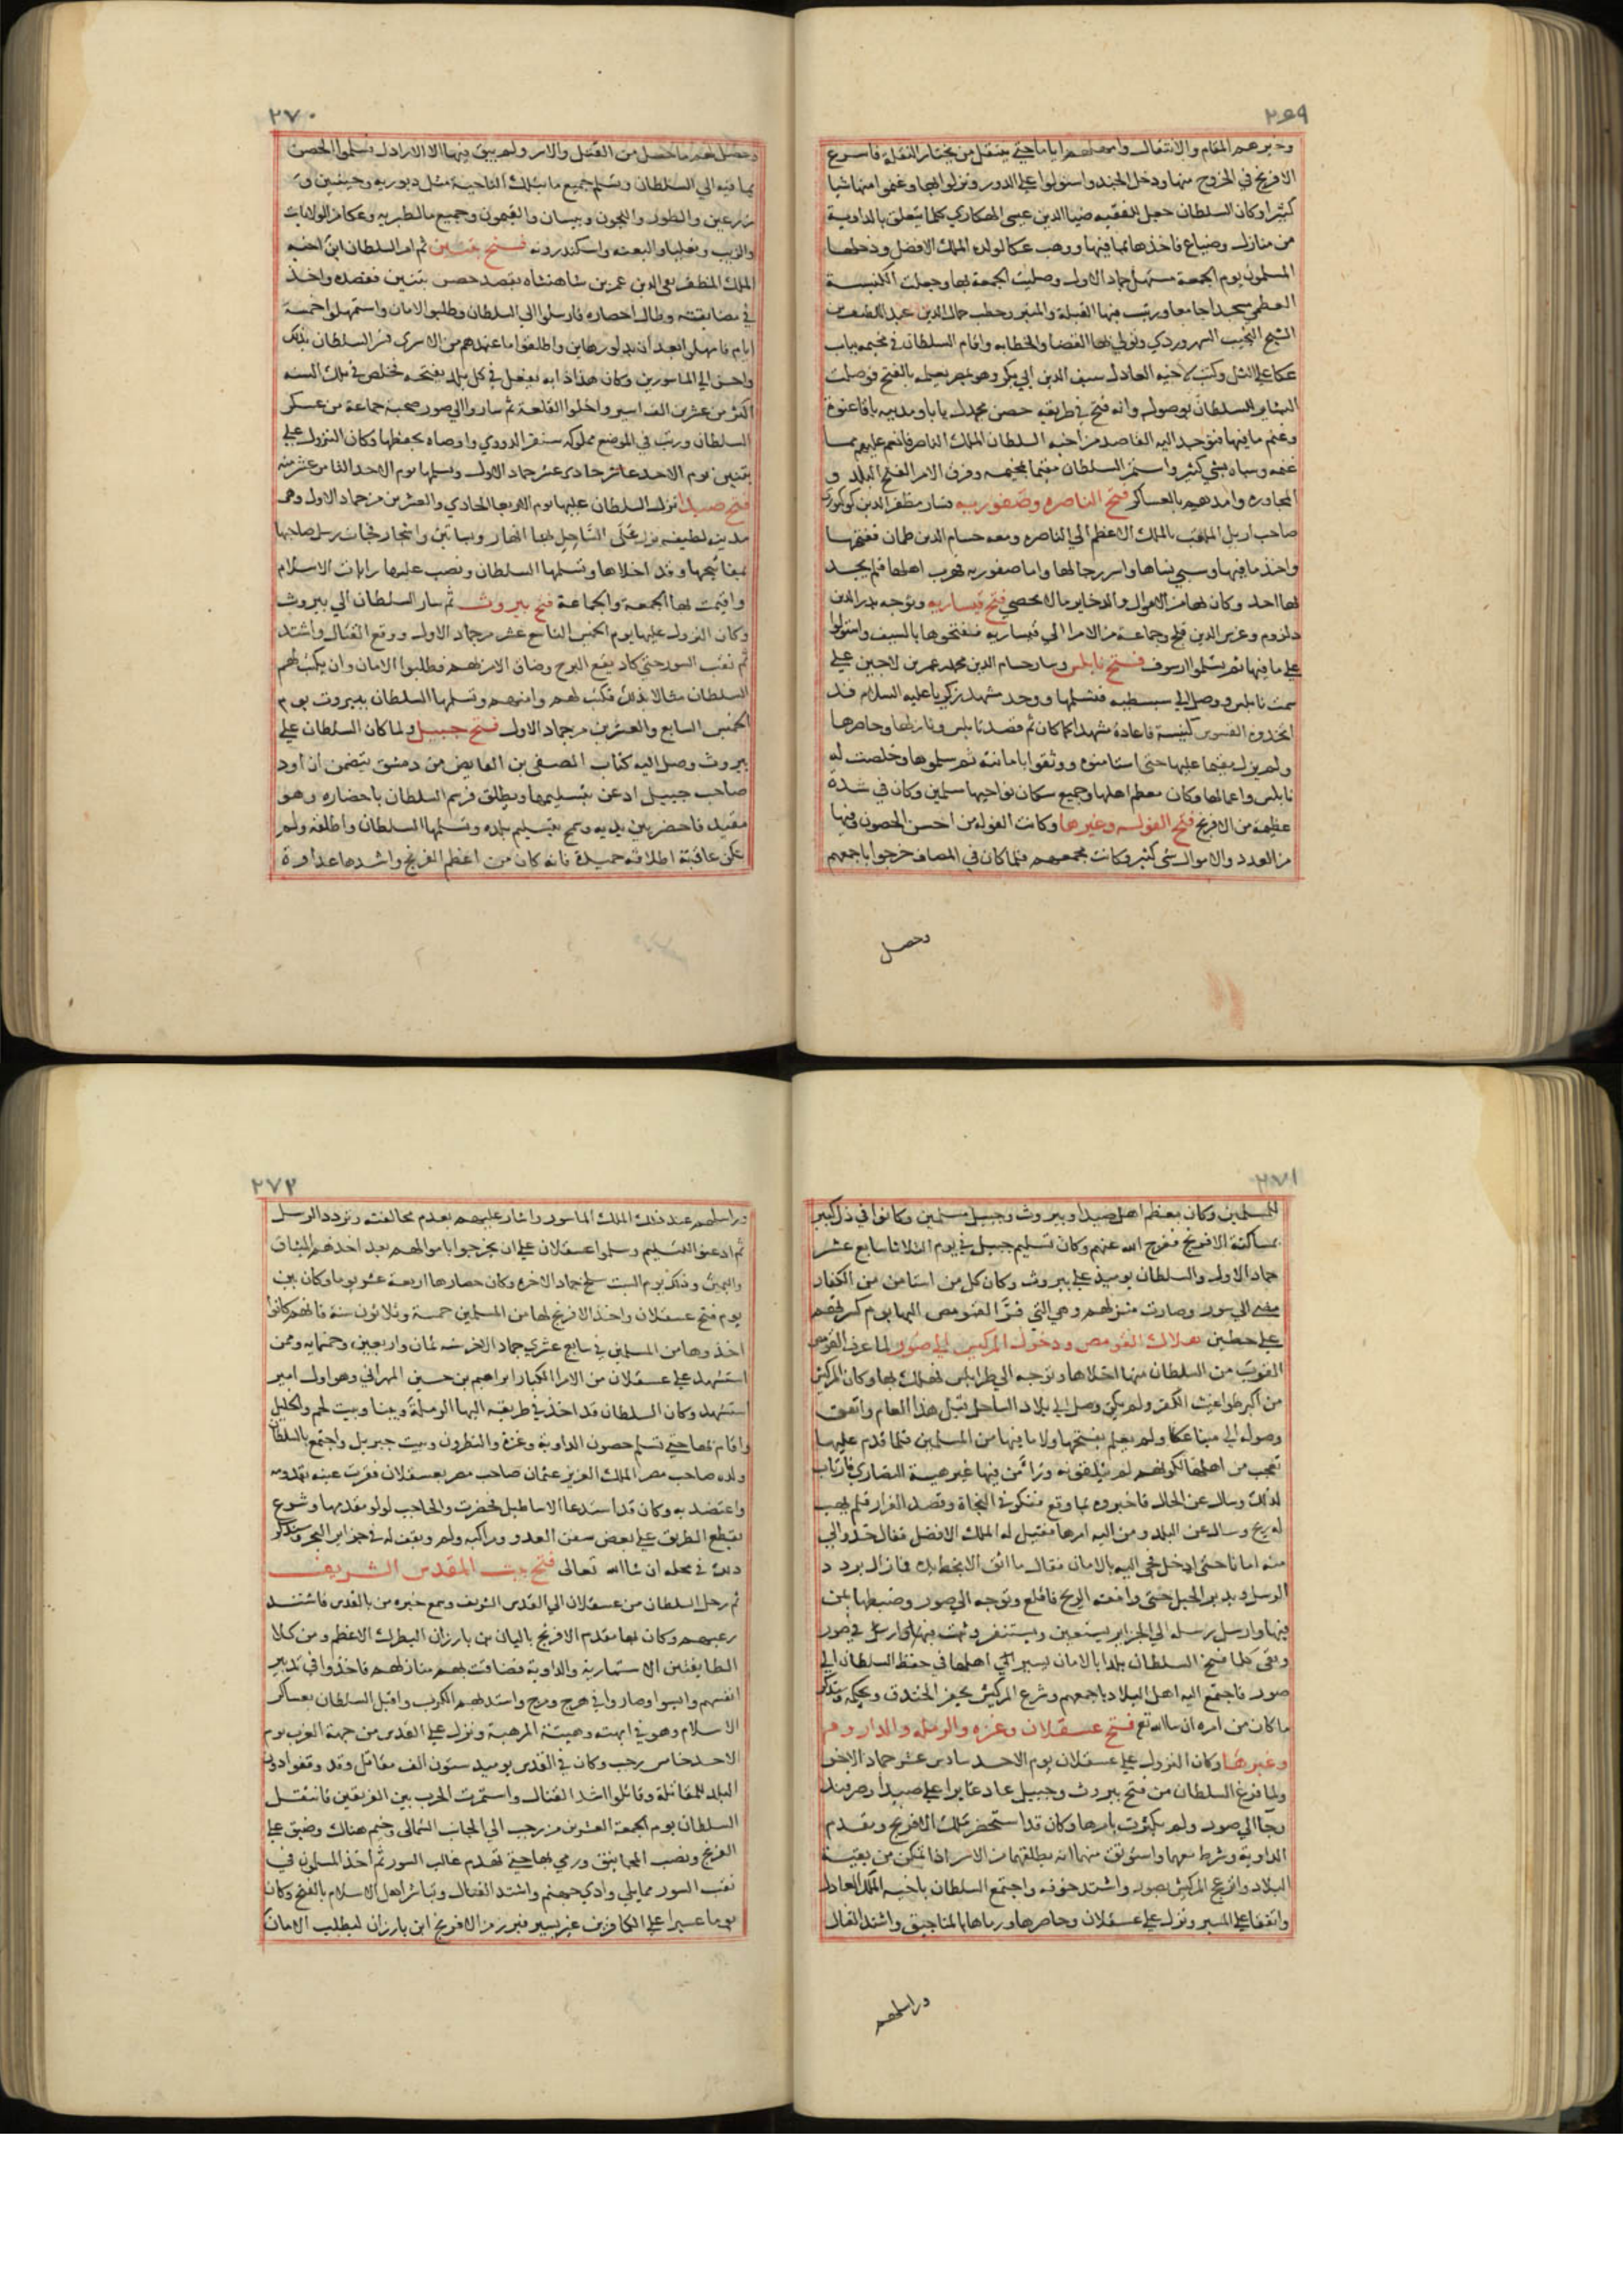 ٢٦٩
وخيرهم المقام والانتقال وامهلهم اياما حتى ينتقل من يختار النقلة فاسرع
الافرنج في الخروج منها ودخل الجند واستولوا على الدور ونزلوا بها وغنموا منها شيا
كثيرا وكان السلطان جعل للفقيه ضيا الدين عيسى الهكاري كلما يتعلق بالداوية
من منازل وضياع فاخذها بما فيها ووهب عكا لولده الملك الافضل ودخلها
المسلمون يوم الجمعة مستهل جماد الاول وصليت الجمعة بها وجعلت الكنيسة
العظمى مسجدا جامعا ورتب فيها القبلة والمنبر وخطب جمال الدين عبد اللطيف بن
الشيخ النجيب السهروردي وتولى بها القضا والخطابه واقام السلطان في مخيمه بباب
عكا على التل وكتب لاخيه العادل سيف الدين ابي بكر وهو بمصر يعلمه بالفتح فوصلت
البشاير للسلطان بوصوله وانه فتح في طريقه حصن مجدل يابا ومدينه يافا عنوة
وغنم ما فيها فتوجه اليه القاصد من اخيه السلطان الملك الناصر فانعم عليهم بما
غنمه وسباه بشي كثير واستمر السلطان مقيما بمخيمه وفرق الامرا لفتح البلاد و
المجاوره وامدهم بالعساكر فتح الناصره وصفوريه فسار مظفر الدين كوكبوري
صاحب اربل الملقب بالملك الاعظم الى الناصره ومعه حسام الدين طمان ففتحها
واخذ ما فيها وسبي نساها واسر رجالها واما صفوريه فهرب اهلها فلم يجد
بها احد وكان بها من الاموال والذخاير ما لا يحصي فتح قيساريه وتوجه بدر الدين
دلزوم وغرس الدين قلج وجماعة من الامرا الى قيساريه ففتحوها بالسيف واستولوا
على ما فيها ثم تسلموا ارسوف فتح نابلس وسار حسام الدين محمد بن عمر بن لاجين على
سمت نابلس ووصل الى سبسطيه فتسلمها ووجد مشهد زكريا عليه السلام قد
اتخذوه القسوس كنيسة فاعاده مشهدا كما كان ثم قصد نابلس ونازلها وحاصرها
ولم يزل مقيما عليها حتى استامنوه ووثقوا بامانته ثم سلموها وخلصت له
نابلس واعمالها وكان معظم اهلها وجميع سكان نواحيها مسلمين وكان في شدة
عظيمة من الافرنج فتح الفوله وغيرها وكانت الفوله من احسن الحصون وفيها
من العدد والاموال شى كثير وكانت مجمعهم فلما كان في المصاف خرجوا باجمعهم
وحصل
٢٧٠
وحصل لهم ما حصل من القتل والاسر ولم يبق فيها الا الاراذل فسلموا الحصن
بما فيه الى السلطان وتسلم جميع ما بتلك الناحية مثل دبوريه وجينين و
زرعين والطور واللجون وبيسان والقيمون وجميع ما لطبريه وعكا من الولايات
والزيب ومعليا والبعنه واسكندرونه فتح تبنين ثم امر السلطان ابن اخيه
الملك المظفر تقي الدين عمر بن شاهنشاه بقصد حصن تبنين فقصده واخذ
في مضايقته وطال حصاره فارسلوا الى السلطان وطلبوا الامان واستمهلوا خمسة
ايام فامهلوا بعد ان بذلوا رهاين واطلقوا ما عندهم من الاسرى فسر السلطان بذلك
واحسن الى الماسورين وكان هذا دابه يفعل في كل بلد يفتحه فخلص في تلك السنه
اكثر من عشرين الف اسير واخلوا القلعة ثم ساروا الي صور صحبة جماعة من عسكر
السلطان ورتب في الموضع مملوكه سنقر الدووي واوصاه بحفظها وكان النزول على
تبنين يوم الاحد عاشر حادى عشر جماد الاول وتسلمها يوم الاحد الثامن عشر منه
فتح صيدا نزل السلطان عليها يوم الاربعا الحادي والعشرين من جماد الاول وهى
مدينه لطيفه نزل على الساحل بها انهار وبساتين واشجار فجات رسل صاحبها
بمفاتيحها وقد اخلاها وتسلمها السلطان ونصب عليها رايات الاسلام
واقيمت بها الجمعة والجماعة فتح بيروت ثم سار السلطان الى بيروت
وكان النزول عليها يوم الخميس التاسع عشر من جماد الاول ووقع القتال واشتد
ثم نقب السور حتى كاد يقع البرج وضاق الامر بهم فطلبوا الامان وان يكتب لهم
السلطان مثالا بذلك فكتب لهم وامنهم وتسلمها السلطان بيروت يوم
الخميس السابع والعشرين من جماد الاول فتح جبيل ولما كان السلطان على
بيروت وصل اليه كتاب الصفى بن القابض من دمشق يتضمن ان اود
صاحب جبيل اذعن بتسليمها ويطلق فرسم السلطان باحضاره وهو
مقيد فاحضر بين يديه وسمح بتسليم بلده وتسلمها السلطان واطلقه ولم
تكن عاقبة اطلاقه حميدة فانه كان من اعظم الفرنج واشدها عداوة
٢٧١
للمسلمين وكان معظم اهل صيدا وبيروت وجبيل مسلمين وكانوا في ذل كبير
بمساكنة الافرنج ففرج الله عنهم وكان تسليم جبيل في يوم الثلاثا سابع عشر
جماد الاول والسلطان يوميذ على بيروت وكان كل من استامن من الكفار
مضى الى صور وصارت منزلهم وهى التى فر القومص اليها يوم كسرتهم
على حطين هلاك القومص ودخول المركيس الى صور لما عرف القومص
القرب من السلطان منها اخلاها وتوجه الى طرابلس فهلك بها وكان المركيس
من اكبر طواغيت الكفر ولم يكن وصل الى بلاد الساحل قبل هذا العام واتفق
وصوله الى مينا عكا ولم يعلم بفتحها ولا ما فيها من المسلمين فلما قدم عليها
تعجب من اهلها لكونهم لم يتلقونه وتراآى من فيها غير هيبة النصارى فارتاب
لذلك وسال عن الحال فاخبروه بما وقع ففكر في النجاة وقصد الفرار فلم يهب
له ريح وسال عن البلد ومن اليه امرها فقيل له الملك الافضل فقال خذوا لي
منه امانا حتى ادخل فجى اليه بالامان فقال ما اثق الا بخط يده فما زال يردد
الرسل ويدبر الحيل حتى وافقته الريح فاقلع وتوجه الى صور وضبطها بمن
فيها وارسل رسله الى الجزاير يستعين ويستنفر وثبت في صور
وبقى كلما فتح السلطان بلدا بالامان يسير الى اهلها في حفظ السلطان الى
صور فاجتمع اليه اهل البلاد باجمعهم وشرع المركيس يحفر الخندق ويحكمه وسنذكر
ما كان من امره ان شا الله تع فتح عسقلان وغزه والرمله والداروم
وغيرها وكان النزول على عسقلان يوم الاحد سادس عشر جماد الاخر
ولما فرغ السلطان من فتح بيروت وجبيل عاد عابرا على صيدا وصرفند
وجا الى صور ولم يكترث بامرها وكان قد استحضر ملك الافرنج ومقدم
الداوية وشرط معهما واستوثق منهما انه يطلقهما من الاسر اذا تمكن من بقية
البلاد وانزعج المركيس بصور واشتد خوفه واجتمع السلطان باخيه الملك العادل
واتفقا على المسير ونزل على عسقلان وحاصرها ورماها بالمناجيق واشتد القتال
وراسلهم
٢٧٢
وراسلهم عند ذلك الملك الماسور واشار عليهم بعدم مخالفته وتردد الرسل
ثم اذعنوا للتسليم وسلموا عسقلان على ان يخرجوا باموالهم بعد اخذهم الميثاق
واليمين وذلك يوم السبت سلخ جماد الاخره وكان حصارها اربعة عشر يوما وكان بين
يوم فتح عسقلان واخذ الافرنج لها من المسلمين خمسة وثلاثون سنة فانهم كانوا
اخذوها من المسلمين في سابع عشري جماد الاخر سنه ثمان واربعين وخمسمايه وممن
استشهد على عسقلان من الامرا الكبار ابراهيم بن حسين المهراني وهو اول امير
استشهد وكان السلطان قد اخذ في طريقه اليها الرملة ويبنا وبيت لحم والخليل
واقام بها حتى تسلم حصون الداوية وغزة والنطرون وبيت جبريل واجتمع بالسلطان
ولده صاحب مصر الملك العزيز عثمان صاحب مصر بعسقلان فقرت عينه بقدومه
واعتضد به وكان قد استدعا الاساطيل فحضرت والحاجب لولو مقدمها وشرع
يقطع الطريق على بعض سفن العدو ومراكبه ولم ويقف له في جزاير البحر وسنذكر
ذلك في محله ان شا الله تعالى فتح بيت المقدس الشريف
ثم رحل السلطان من عسقلان الى القدس الشريف وسمع خبره من بالقدس فاشتد
رعبهم وكان بها مقدم الافرنج باليان بن بارزان البطرك الاعظم ومن كلا
الطايفتين الاستبارية والداوية فضاقت بهم منازلهم فاخذوا في تدبير
انفسهم وايسوا وصاروا في هرج ومرج واشتد بهم الكرب واقبل السلطان بعساكر
الاسلام وهو في ابهته وهيئته المرهبة ونزل على القدس من جهة الغرب يوم
الاحد خامس رجب وكان في القدس يوميذ ستون الف مقاتل وقد وقفوا دون
البلد للمقاتلة وقاتلوا اشد القتال واستمرت الحرب بين الفريقين فانتقل
السلطان يوم الجمعة العشرين من رجب الى الجانب الشمالى وخيم هناك وضيق على
الفرنج ونصب المجانيق ورمي بها حتى تهدم غالب السور ثم اخذ المسلمون في
نقب السور مما يلي وادي جهنم واشتد القتال وتباشر اهل الاسلام بالفتح وكان
يوما عسيرا على الكافرين غير يسير فبرز من الافرنج ابن بارزان ليطلب الامان